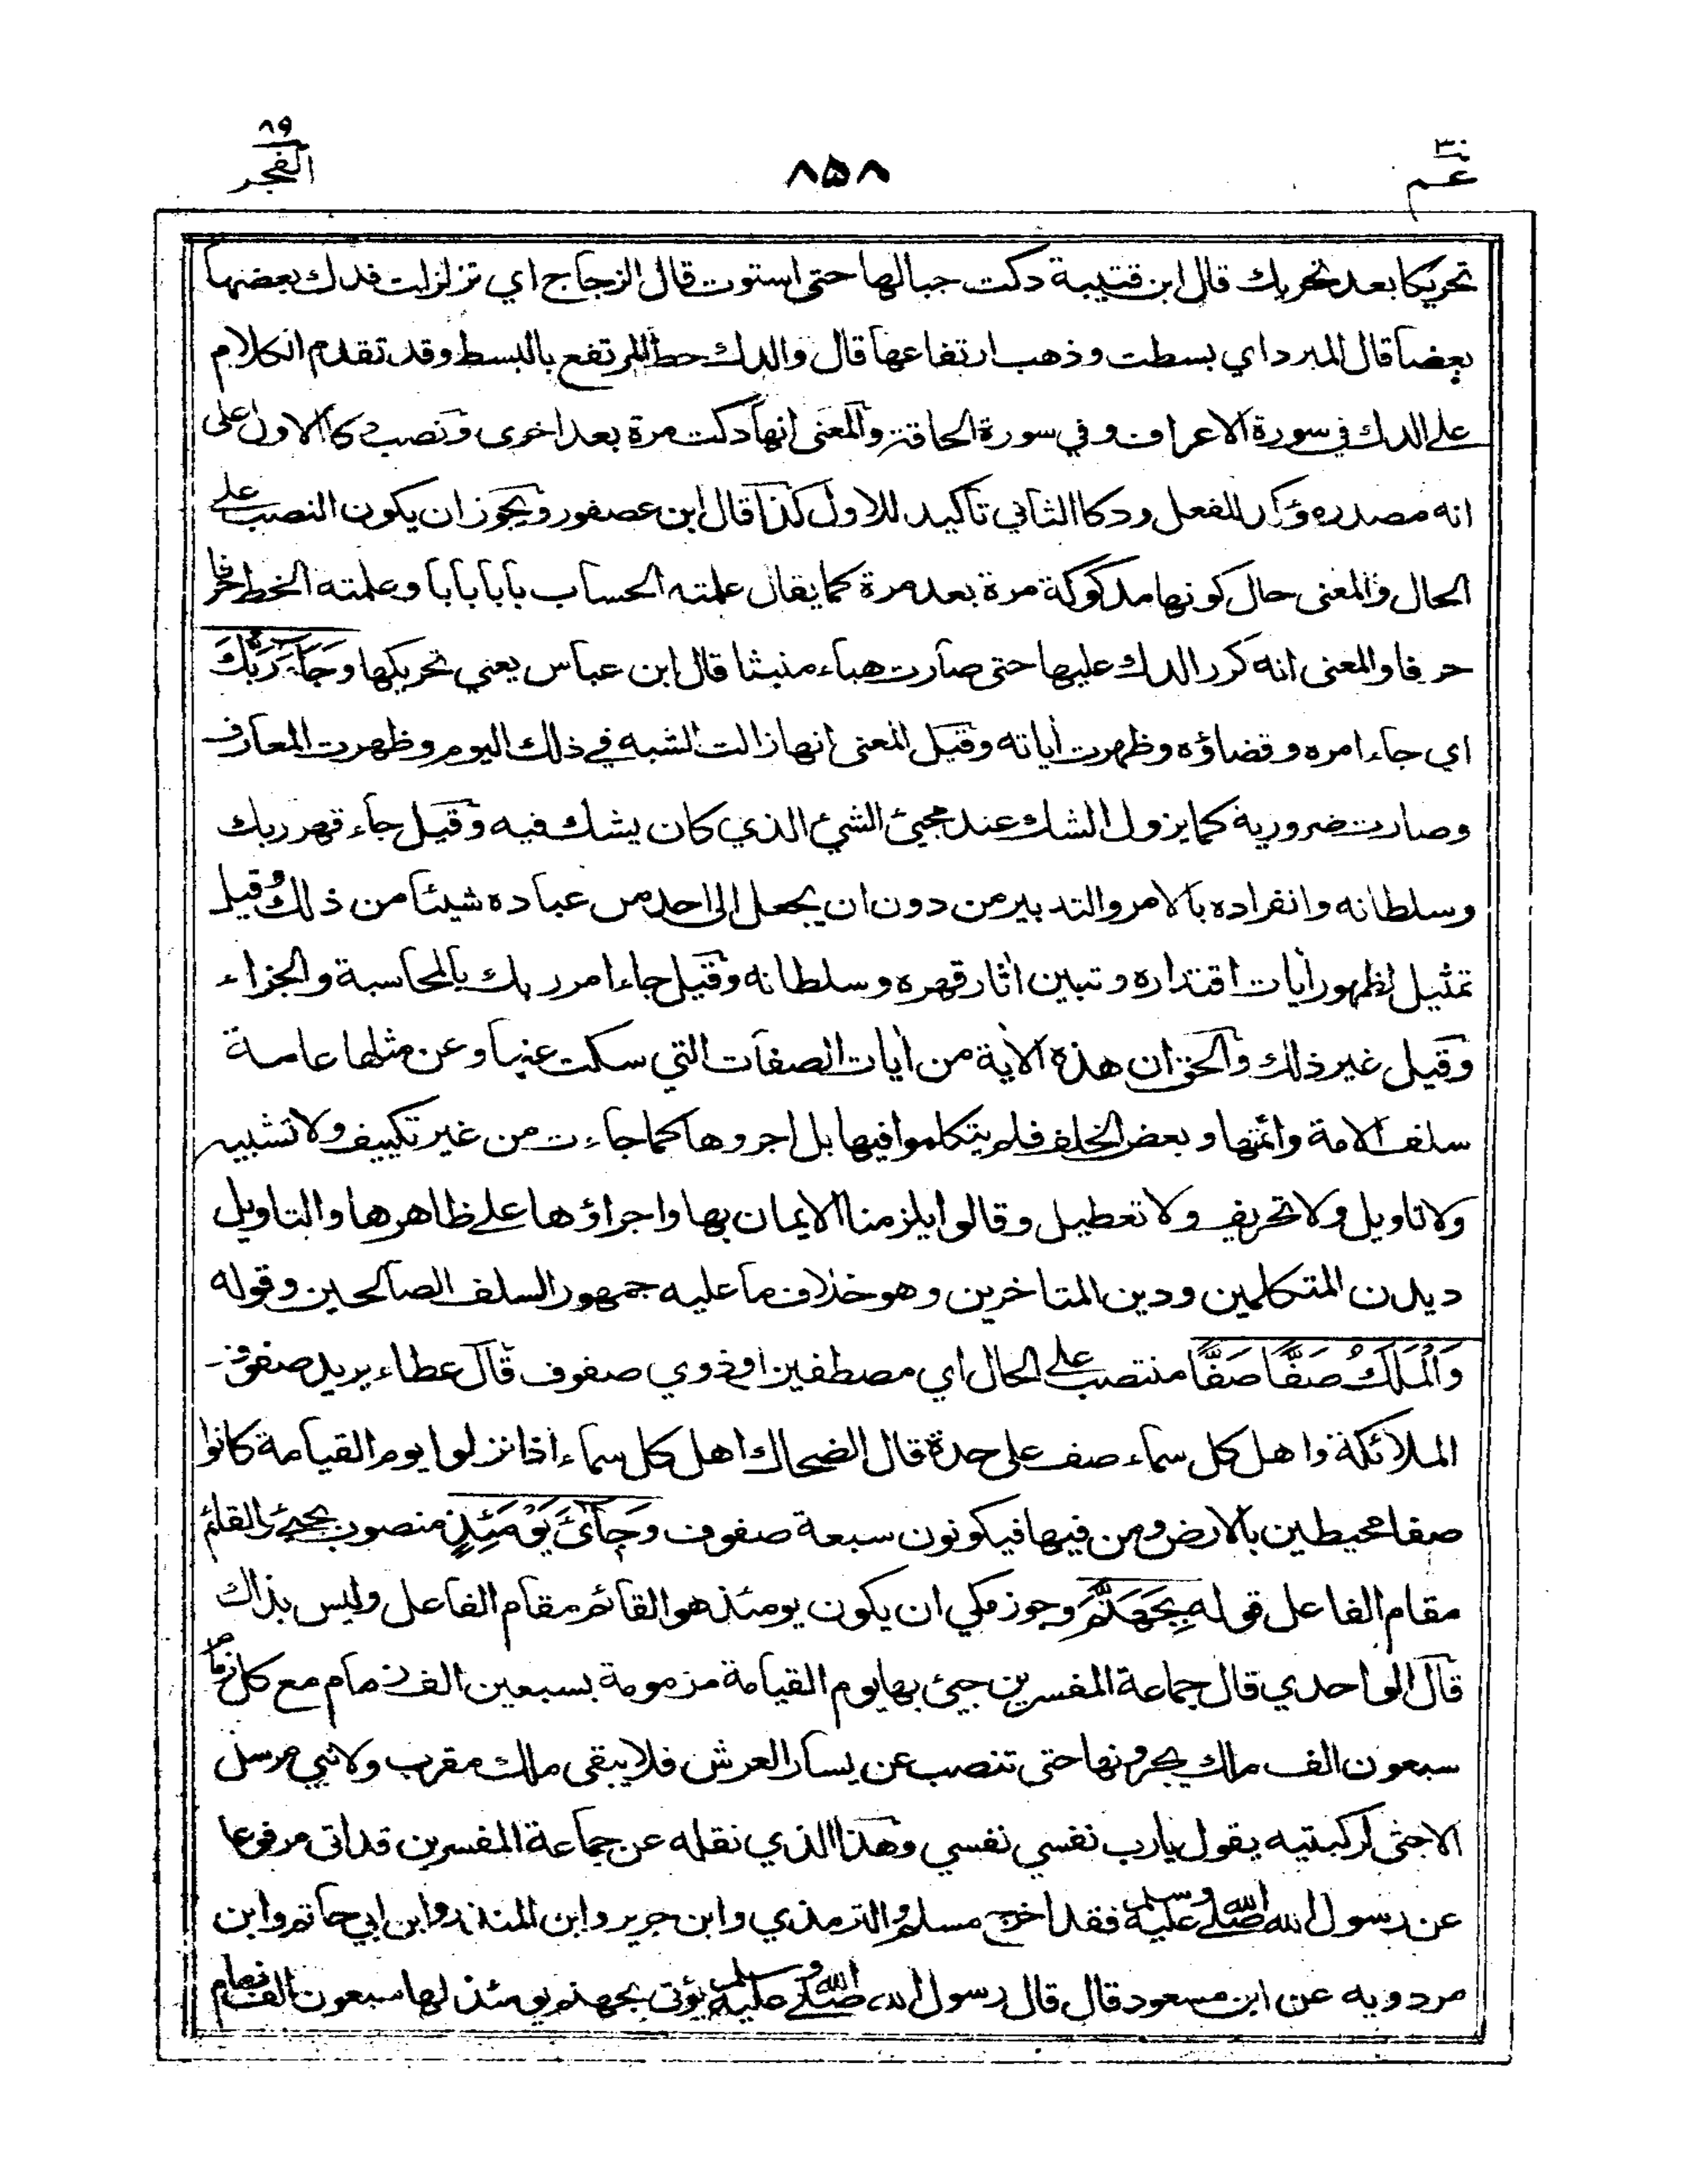 ٣٠
عم
٨٥٨
٨٩
الفجر
تحريكا بعد تحريك قال ابن قتيبة دكت جبالها حتى استوت قال الزجاج اي تزلزلت فدك بعضها
بعضا قال المبرد اي بسطت وذهب ارتفاعها قال والدك حط المرتفع بالبسط وقد تقدم الكلام
على الدك في سورة الاعراف وفي سورة الحاقة والمعنى انها دكت مرة بعد اخرى ونصب دكا الاول على
انه مصدر مؤكد للفعل ودكا الثاني تأكيد للاول كذا قال ابن عصفور ويجوز ان يكون النصب على
الحال والمعنى حال كونها مدكوكة مرة بعد مرة كما يقال علمته الحساب بابا بابا وعلمته الخط حرفا
حرفا والمعنى انه كرر الدك عليها حتى صارت هباء منبثا قال ابن عباس يعني تحريكها وَجَآءَ رَبُّكَ
اي جاء امره وقضاؤه وظهرت أياته وقيل المعنى انها زالت الشبه في ذلك اليوم وظهرت المعارف
وصارت ضرورية كما يزول الشك عند مجيئ الشيئ الذي كان يشك فيه وقيل جاء قهر ربك
وسلطانه وانفراده بالامر والتدبير من دون ان يجعل الى احد من عباده شيئا من ذلك وقيل
تمثيل لظهور أيات اقتداره وتبين أثار قهره وسلطانه وقيل جاء امر ربك بالمحاسبة والجزاء
وقيل غير ذلك والحق ان هذه الأية من أيات الصفات التي سكت عنها وعن مثلها عامة
سلف الامة وائمتها وبعض الخلف فلم يتكلموا فيها بل اجروها كما جاءت من غير تكييف ولا تشبيه
ولا تاويل ولا تحريف ولا تعطيل وقالوا يلزمنا الايمان بها واجراؤها على ظاهرها والتاويل
ديدن المتكلمين ودين المتاخرين وهو خلاف ما عليه جمهور السلف الصالحين وقوله
وَالْمَلَكُ صَفًّا صَفًّا منتصب على الحال اي مصطفين او ذوي صفوف قال عطاء يريد صفوف
الملائكة واهل كل سماء صف على حدة قال الضحاك اهل كل سماء اذا نزلوا يوم القيامة كانوا
صفا محيطين بالارض ومن فيها فيكونون سبعة صفوف وَجِآئَ يَوْمَئِذٍ منصوب بجيئ والقائم
مقام الفاعل قوله بِجَهَنَّمَ وجوز مكي ان يكون يومئذ هو القائم مقام الفاعل وليس بذاك
قال الواحدي قال جماعة المفسرين جيئ بها يوم القيامة مزمومة بسبعين الف زمام مع كل زمام
سبعون الف ملك يجرونها حتى تنصب عن يسار العرش فلا يبقى ملك مقرب ولا نبي مرسل
الا جثى لركبتيه يقول يارب نفسي نفسي وهذا الذي نقله عن جماعة المفسرين قد اتى مرفوعا
عن رسول الله صلى الله عليه وسلم فقد اخرج مسلم والترمذي وابن جرير وابن المنذر وابن ابي حاتم وابن
مردويه عن ابن مسعود قال قال رسول الله صلى الله عليه وسلم يؤتى بجهنم يومئذ لها سبعون الف زمام